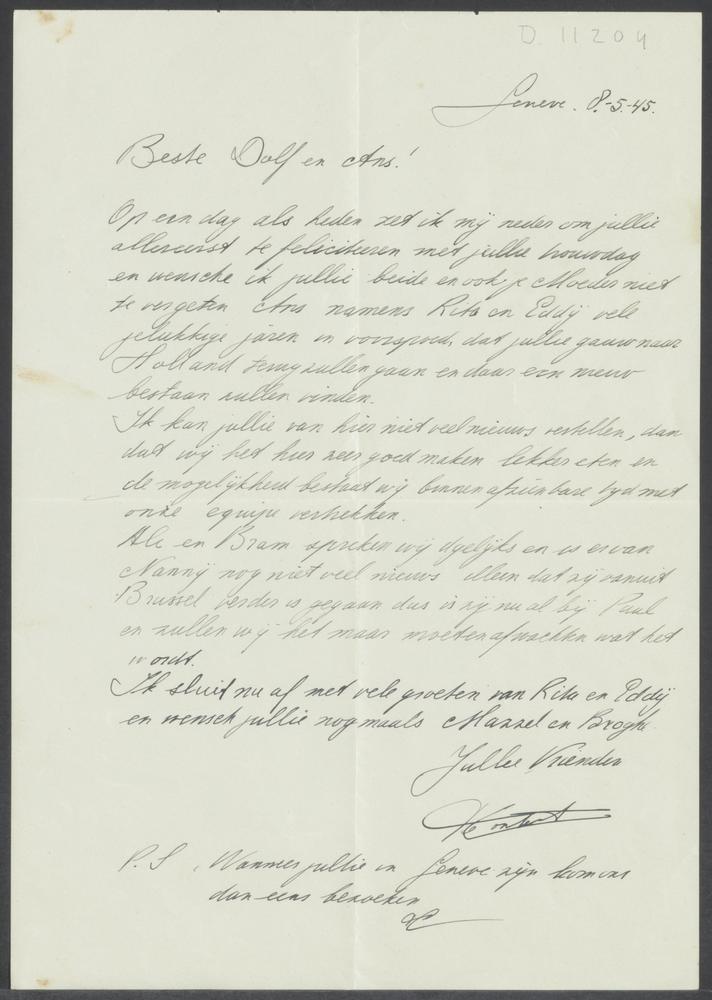 D. 11204
Geneve. 8.-5.-45.
Beste Dolf en Ans!
Op een dag als heden zet ik mij neder om jullie
allereerst te feliciteeren met jullie trouwdag
en wensche ik jullie beide en ook je Moeder niet
te vergeten Ans namens Rita en Eddÿ vele
gelukkige jaren en voorspoed, dat jullie gauw naar
Holland terug zullen gaan en daar een nieuw
bestaan zullen vinden.
Ik kan jullie van hier niet veel nieuws vertellen, dan
dat wij het hier zeer goed maken lekker eten en
de mogelijkheid bestaat wij binnen afzienbare tyd met
onze equipe vertrekken.
Ale en Bram spreken wij dgelijks en is er van
Nannÿ nog niet veel nieuws alleen dat zij vanuit
Brussel verder is gegaan dus is zij nu al bij Paul
en zullen wij het maar moeten afwachten wat het
wordt.
Ik sluit nu af met vele groeten van Rita en Eddÿ
en wensch jullie nogmaals Mazzel en Broghe.
Jullee Vrienden
P.S. Wanneer jullie in Geneve zijn kom ons
dan eens bezoeken